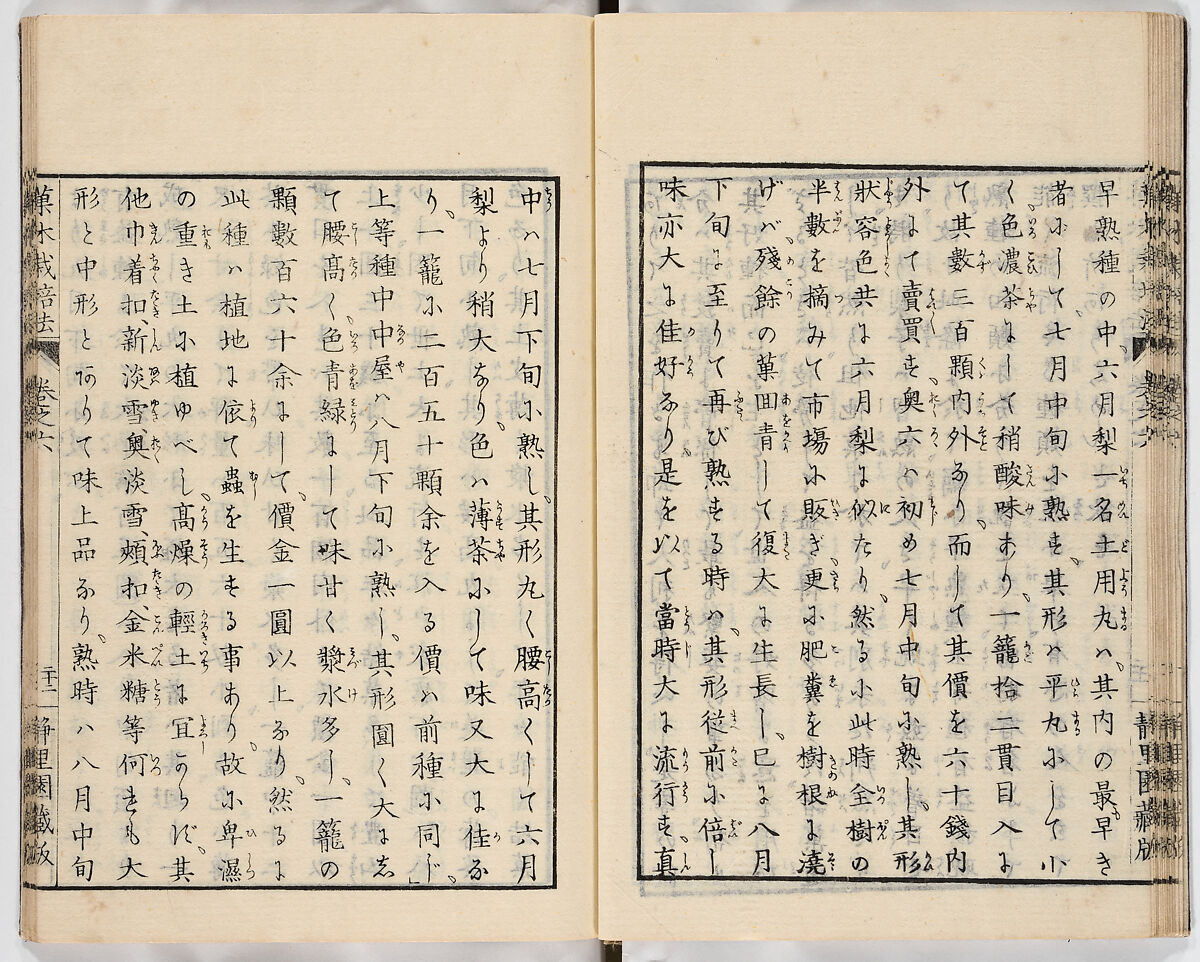 早熟種の中、六月梨一名土用丸ハ、其内の最早き
者にして、七月中旬に熟す、其形ハ平丸にして小
く、色濃茶にして稍酸味あり、一籠拾二貫目入に
て其數三百顆内外なり、而して其價を六十錢内
外にて賣買す、奥六ハ初め七月中旬に熟し、其形
狀容色共に六月梨に似たり、然るに此時全樹の
半數を摘みて市場に販ぎ、更に肥糞を樹根に澆
げバ、殘餘の菓回青して復大に生長し、已に八月
下旬に至りて再び熟する時ハ、其形従前に倍し
味亦大に佳好なり是を以て當時大に流行す、真
中ハ七月下旬に熟し、其形丸く腰高くして六月
梨より稍大なり、色ハ薄茶にして味又大に佳な
り、一籠に二百五十顆余を入る價ハ前種に同じ、
上等種中中屋ハ八月下旬に熟し、其形圓く大に志
て腰髙く色青緑にして味甘く漿水多し、一籠の
顆數百六十余にして、價金一圓以上なり、然るに
此種ハ植地に依て蟲を生ずる事あり、故に卑濕
の重き土に植ゆべし、髙燥の輕土に宜からず、其
他巾着扣、新淡雪、奥淡雪、頰扣、金米糖等何きも大
形と中形とありて味上品なり、熟時ハ八月中旬
菓木栽培法 卷之六 二十二 静里園藏版